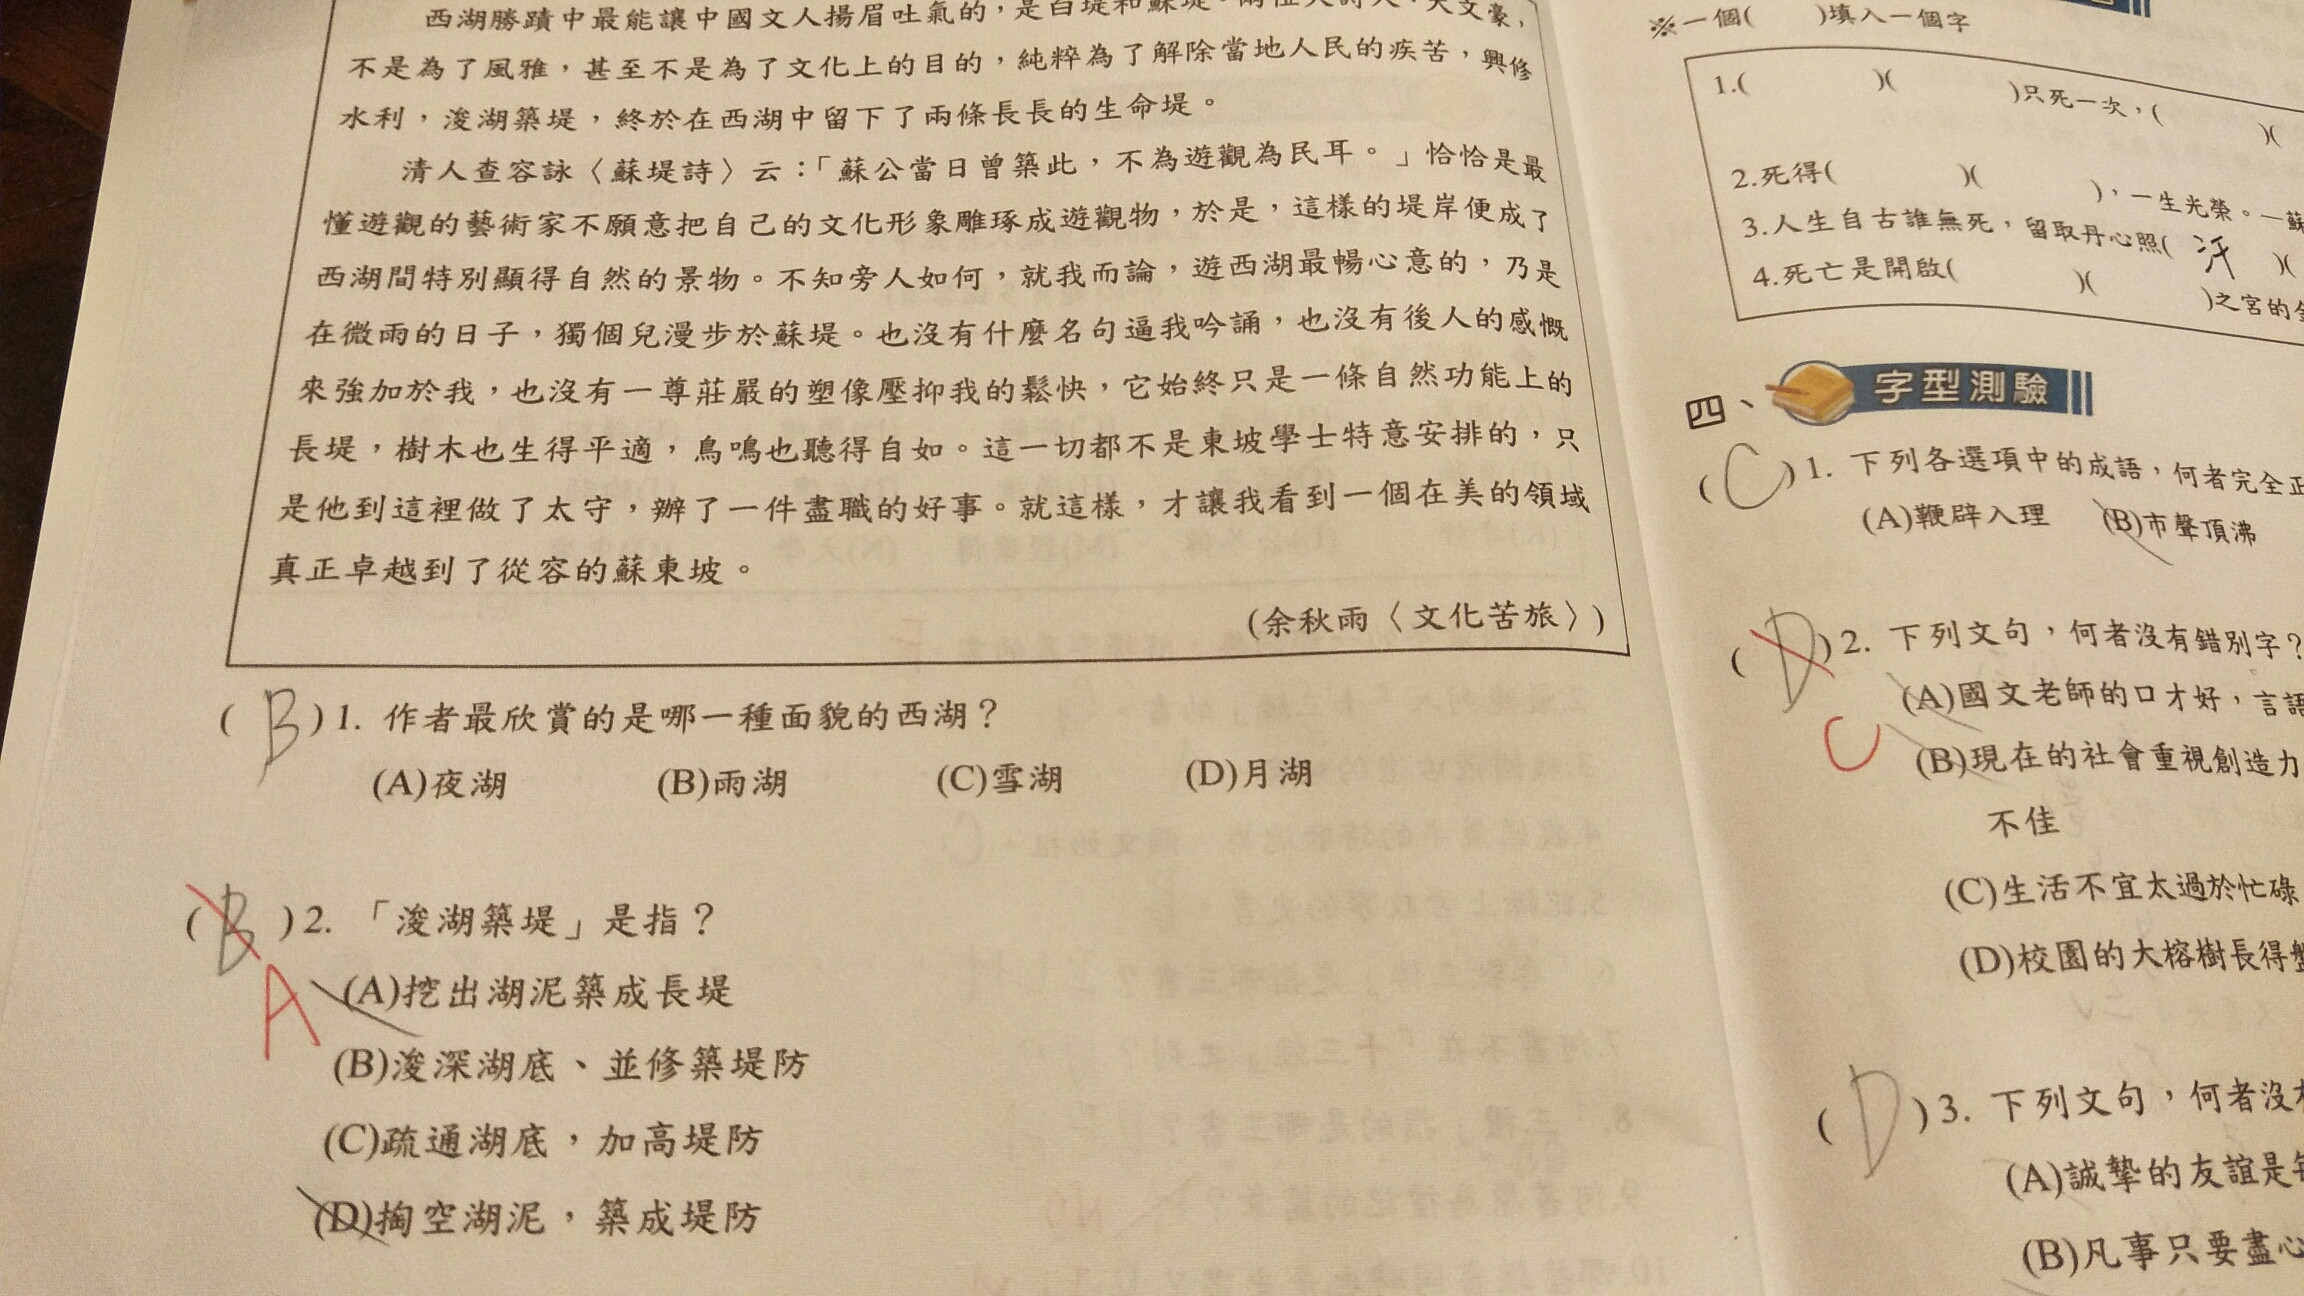 西湖勝蹟中最能讓中國文人揚眉吐氣的，是白堤和蘇堤。兩位大詩人、大文豪，
不是為了風雅，甚至不是為了文化上的目的，純粹為了解除當地人民的疾苦，興修
水利，浚湖築堤，終於在西湖中留下了兩條長長的生命堤。
清人查容詠〈蘇堤詩〉云：「蘇公當日曾築此，不為遊觀為民耳。」恰恰是最
懂遊觀的藝術家不願意把自己的文化形象雕琢成遊觀物，於是，這樣的堤岸便成了
西湖間特別顯得自然的景物。不知旁人如何，就我而論，遊西湖最暢心意的，乃是
在微雨的日子，獨個兒漫步於蘇堤。也沒有什麼名句逼我吟誦，也沒有後人的感慨
來強加於我，也沒有一尊莊嚴的塑像壓抑我的鬆快，它始終只是一條自然功能上的
長堤，樹木也生得平適，鳥鳴也聽得自如。這一切都不是東坡學士特意安排的，只
是他到這裡做了太守，辦了一件盡職的好事。就這樣，才讓我看到一個在美的領域
真正卓越到了從容的蘇東坡。
(余秋雨〈文化苦旅〉)
( B )1. 作者最欣賞的是哪一種面貌的西湖？
(A)夜湖 (B)雨湖 (C)雪湖 (D)月湖
( B )2. 「浚湖築堤」是指？
A
(A)挖出湖泥築成長堤
(B)浚深湖底、並修築堤防
(C)疏通湖底，加高堤防
(D)掏空湖泥，築成堤防
※一個( )填入一個字
1.( )( )只死一次，( )(
2.死得( )( )，一生光榮。—蘇
3.人生自古誰無死，留取丹心照( 汗 )(
4.死亡是開啟( )( )之宮的
四、字型測驗
( C )1. 下列各選項中的成語，何者完全正
(A)鞭辟入理 (B)市聲頂沸
( D )2. 下列文句，何者沒有錯別字？
C
(A)國文老師的口才好，言語
(B)現在的社會重視創造力
不佳
(C)生活不宜太過於忙碌
(D)校園的大榕樹長得盤
( D )3. 下列文句，何者沒有
(A)誠摯的友誼是
(B)凡事只要盡心